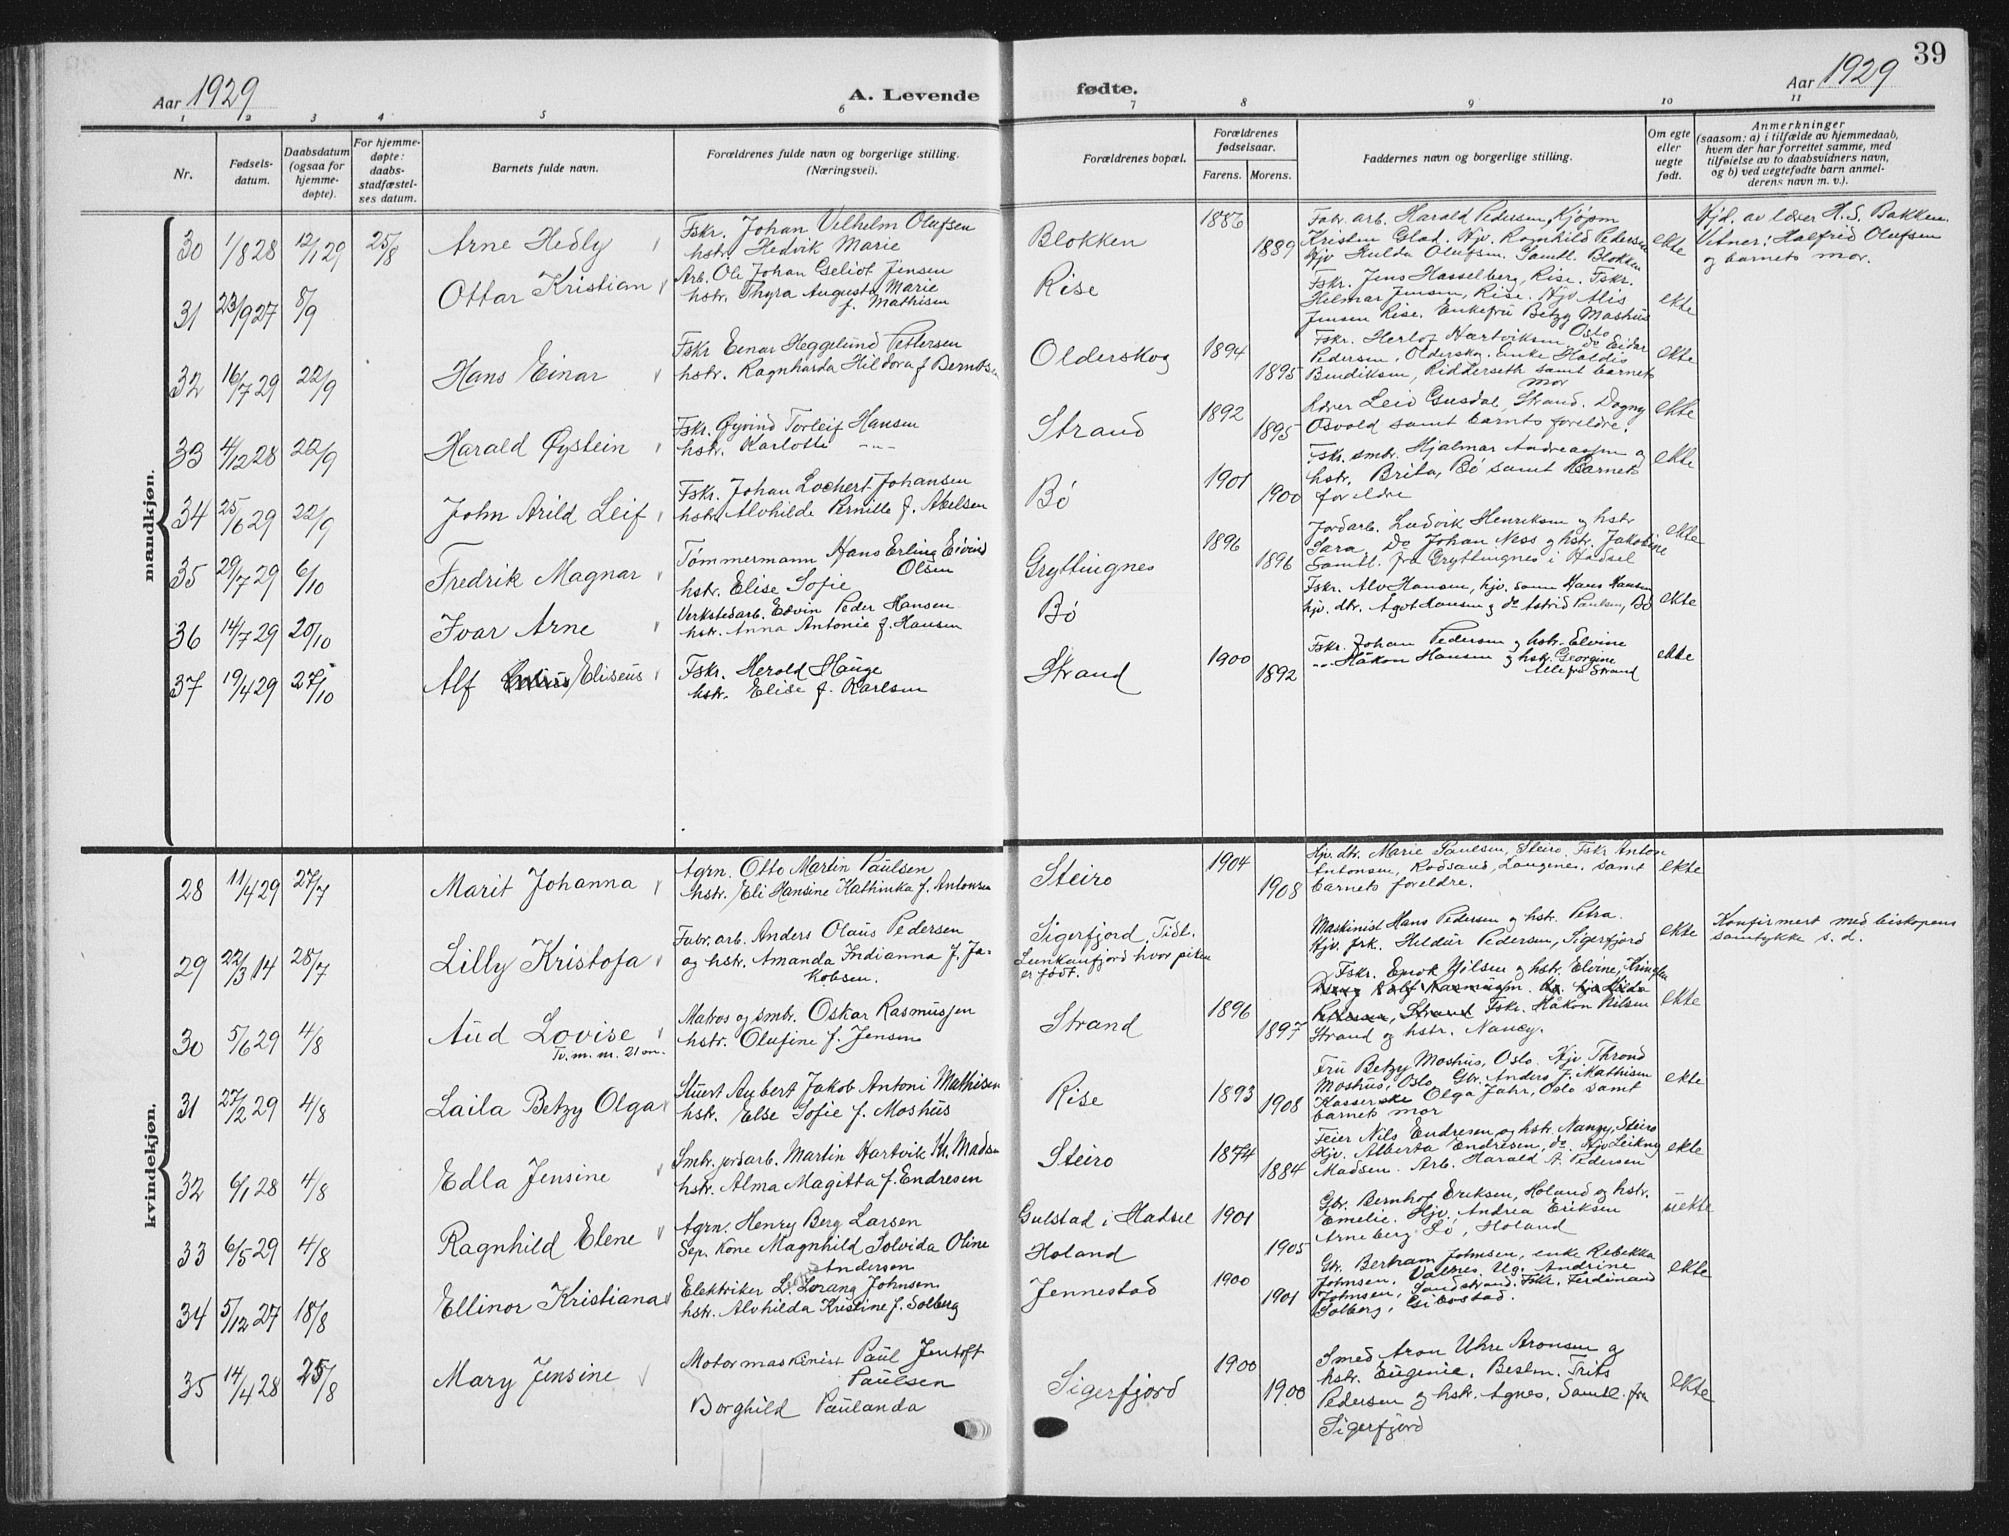 39
Aar 1929
A. Levende
fødte.
Aar 1929
1 2 3 4 5 6 7 8 9 10 11
Nr.
Fødsels-
datum.
Daabsdatum
(ogsaa for
hjemme-
døpte).
For hjemme-
døpte:
daabs-
stadfæstel-
ses datum.
Barnets fulde navn.
Forældrenes fulde navn og borgerlige stilling.
(Næringsvei).
Forældrenes bopæl.
Forældrenes
fødselsaar.
Farens. Morens.
Faddernes navn og borgerlige stilling.
Om egte
eller
uegte
født.
Anmerkninger
(saasom: a) i tilfælde av hjemmedaab,
hvem der har forrettet samme, med
tilføielse av to daabsvidners navn,
og b) ved uegtefødte barn anmel-
derens navn m. v.).
mandkjøn.
30 1/8 28 12/1 29 25/8 Arne Hedly
Fskr. Johan Vilhelm Olufsen
hstr. Hedvik Marie
Blokken 1886 1889
Fabr. arb. Harald Pedersen, Kjøpm
Kristen Glad. Hjv. Ragnhild Pedersen
Hjv Hulda Olufsen. Samtl. Blokken
ekte
Hjd. av lærer H. S. Bakken.
Vitner: Halfrid Olufsen
og barnets mor.
31 23/9 27 8/9 Ottar Kristian
Arb. Ole Johan Geliot Jensen
hstr. Thyra Augusta Marie
f. Mathisen
Rise
Fskr. Jens Hasselberg, Rise. Fskr.
Hilmar Jensen, Rise. Hjv Alis
Jensen Rise. Enkefru Betzy Moshus
Oslo
ekte
32 16/7 29 22/9 Hans Einar
Fskr Einar Heggelund Pettersen
hstr. Ragnharda Hildora f Berntsen
Olderskog 1894 1895
Fskr. Herlof Hartviksen, do Eidar
Pedersen, Olderskog. Enke Haldis
Bendiksen, Ridderseth samt barnets
mor
ekte
33 4/12 28 22/9 Harald Øystein
Fskr. Øyvind Torleif Hansen
hstr. Karlotte -"-
Strand 1892 1895
Lærer Leif Gusdal, Strand. Dagny
Osvold samt barnets foreldre.
ekte
34 25/6 29 22/9 John Arild Leif
Fskr. Johan Lochert Johansen
hstr. Alvhilde Pernille f. Akelsen
Bö 1901 1900
Fskr. smbr. Hjalmar Andreassen og
hstr. Brita, Bö samt Barnets
foreldre
ekte
35 29/7 29 6/10 Fredrik Magnar
Tømmermann Hans Erling Eivind
Olsen
hstr. Elise Sofie
Gryttingnes 1896 1896
Jordarb. Ludvik Henriksen og hstr
Sara. Do Johan Ness og hstr. Jakobine
Samtl. fra Gryttingnes i Hadsel
ekte
36 14/7 29 20/10 Ivar Arne
Verkstedarb. Edvin Peder Hansen
hstr. Anna Antonie f. Hansen
Bö
Fskr. Alv Hansen, hjv. sønn Hans Hansen
hjv. dtr. Agot Hansen og do Astrid Paulsen, Bö
ekte
37 19/4 29 27/10 Alf Eliseus
Fskr. Herold Hauge
hstr. Elise f. Karlsen
Strand 1900 1892
Fskr. Johan Pedersen og hstr. Elvine
-"- Håkon Hansen og hstr. Georgine
Alle fra Strand
ekte
kvindekjøn.
28 11/4 29 27/7 Marit Johanna
Agrn. Otto Martin Paulsen
hstr. Eli Hansine Kathinka f. Antonsen
Steiro 1904 1908
Hjv. dtr. Marie Paulsen, Steiro. Fskr Anton
Antonsen, Rødsand, Langenes. samt
barnets foreldre.
ekte
29 22/3 14 28/7 Lilly Kristofa
Fabr. arb. Anders Olaus Pedersen
og hstr. Amanda Indianna f. Ja-
kobsen.
Sigerfjord. Tidl.
Lunkanfjord hvor piken
er født.
Maskinist Hans Pedersen og hstr. Petra.
Hjv. frk. Hildur Pedersen, Sigerfjord
ekte
Konfirmert med biskopens
samtykke s. d.
30 5/6 29 4/8 Aud Lovise
Tv. m. m. 21 on.
Matros og smbr. Oskar Rasmussen
hstr. Olufine f. Jensen
Strand 1896 1897
Fskr. Enok Nilsen og hstr. Elvine, Kringlen
Strand Fskr. Håkon Nilsen
Strand og hstr. Nancy.
ekte
31 27/2 29 4/8 Laila Betzy Olga
Stuert Aubert Jakob Antoni Mathisen
hstr. Else Sofie f. Moshus
Rise 1893 1908
Fru Betzy Moshus, Oslo. Hjv Thrond
Moshus, Oslo Gbr. Anders J. Mathisen
Kasserske Olga Jahr, Oslo samt
barnets mor
ekte
32 6/1 28 4/8 Edla Jensine
Smbr. jordarb. Martin Hartvik Kr. Madsen
hstr. Alma Magitta f. Endresen
Steiro 1874 1884
Feier Nils Endresen og hstr. Nanzy, Steiro
Hjv. Alberta Endresen, do. Hjv Leikny
Madsen. Arb. Harald A. Pedersen
ekte
33 6/5 29 4/8 Ragnhild Elene
Agrn. Henry Berg Larsen
Sep. Kone Magnhild Solvida Oline
Andersen
Gulstad i Hadsel
Holand 1901 1905
Gbr. Bernhof Eriksen, Holand og hstr.
Emelie. Hjv. Andrea Eriksen
Arneberg Lö, Holand
uekte
34 5/12 27 18/8 Ellinor Kristiana
Elektriker L. Lorang Johnsen
hstr. Alvhilda Kristine f. Solberg
Jennestad 1900 1901
Gbr. Bertram Johnsen, enke Rebekka
Johnsen, Valnes. Ug. Andrine
Johnsen, Sandstrand. Fskr. Ferdinand
Solberg, Gibostad.
ekte
35 14/4 28 25/8 Mary Jensine
Motormaskinist Paul Jentoft
Paulsen
Borghild Paulanda
Sigerfjord 1900 1900
Smed Aron Uhre Aronsen og
hstr. Eugenie. Bestm. Frits
Pedersen og hstr. Agnes. Samtl. fra
Sigerfjord
ekte